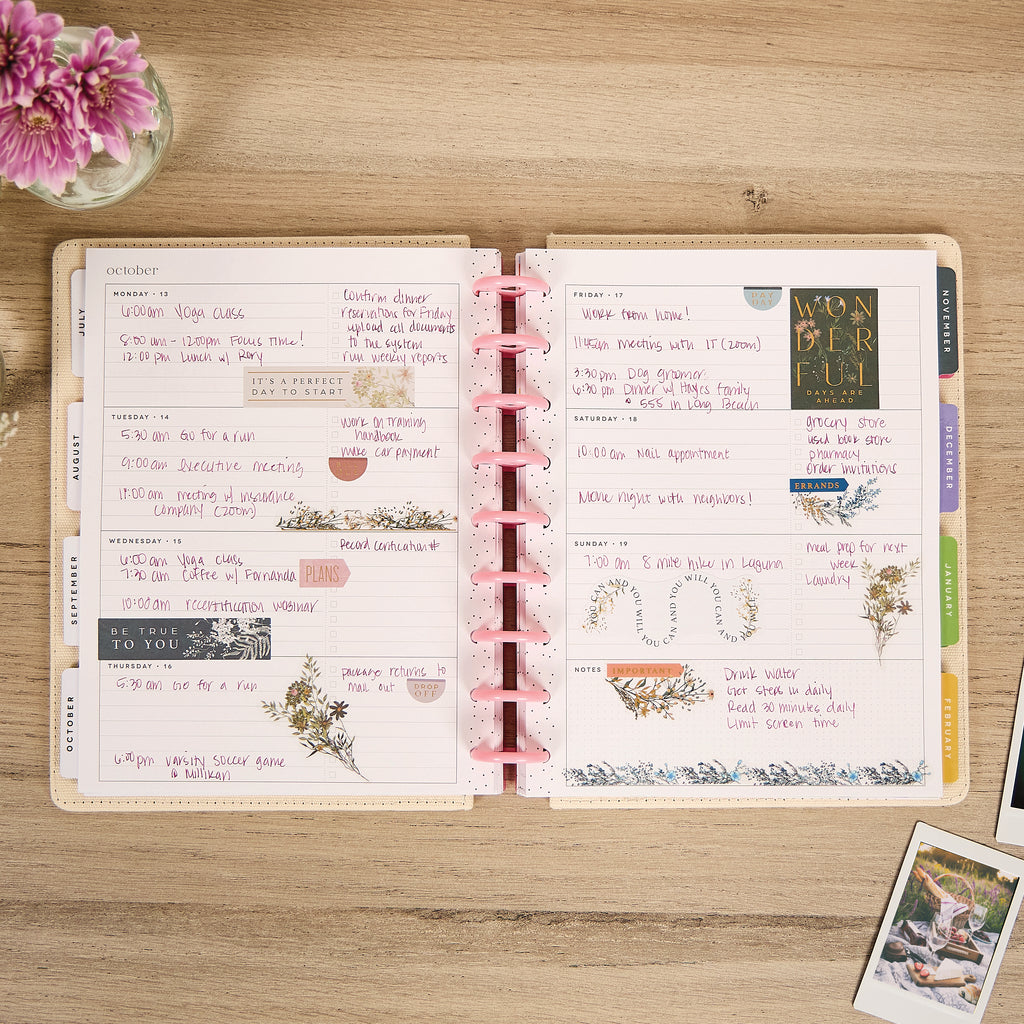 october
MONDAY • 13
6:00am Yoga class
8:00 am - 12:00pm Focus time!
12:00 pm Lunch w/ Rory
confirm dinner
reservations for Friday
upload all documents
to the system
run weekly reports
IT'S A PERFECT
DAY TO START
TUESDAY • 14
5:30 am Go for a run
9:00 am executive meeting
11:00 am meeting w/ insurance
company (zoom)
work on training
handbook
make car payment
WEDNESDAY • 15
6:00 am Yoga class
7:30 am Coffee w/ Fernanda
PLANS
10:00 am recertification webinar
Record certification #
BE TRUE
TO YOU
THURSDAY • 16
5:30 am Go for a run
6:00pm varsity soccer game
@ Millikan
package returns to
mail out
DROP
OFF
FRIDAY • 17
Work from home!
11:45am meeting with IT (zoom)
3:30 pm Dog groomer
6:30 pm Dinner w/ Hayes Family
@ 555 in Long Beach
PAY
DAY
WON
DER
FUL
DAYS ARE
AHEAD
SATURDAY • 18
10:00 am Nail appointment
Movie night with neighbors!
grocery store
used book store
pharmacy
order invitations
ERRANDS
SUNDAY • 19
7:00 am 8 mile hike in Laguna
YOU CAN AND YOU WILL YOU CAN AND YOU WILL YOU CAN AND YOU WILL
meal prep for next
week
Laundry
NOTES
IMPORTANT
Drink water
Get steps in daily
Read 30 minutes daily
Limit screen time
JULY
AUGUST
SEPTEMBER
OCTOBER
NOVEMBER
DECEMBER
JANUARY
FEBRUARY